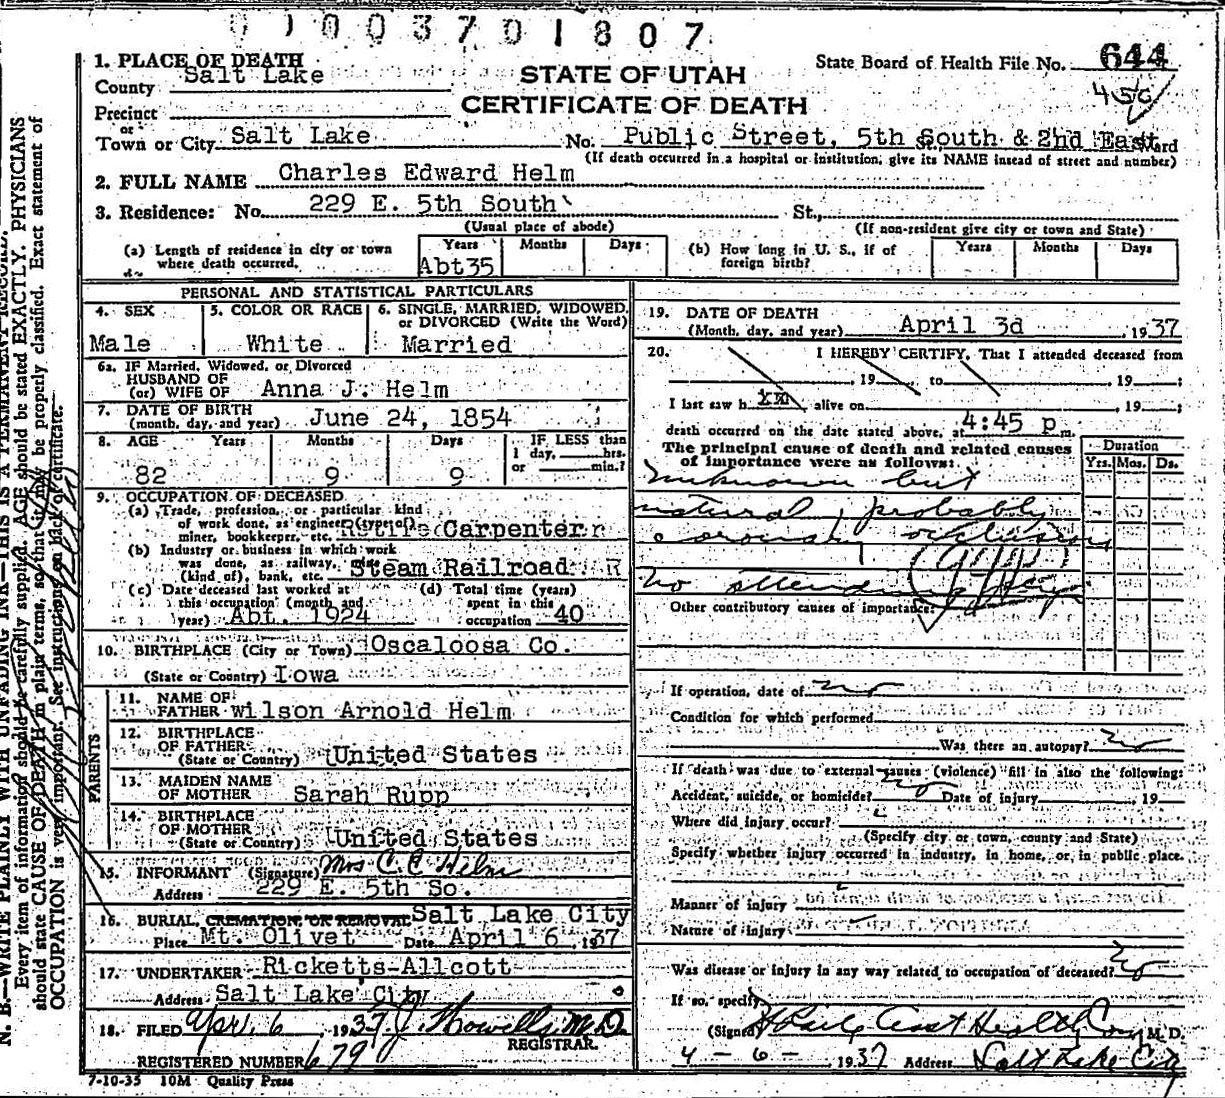 01003701807
1. PLACE OF DEATH
County Salt Lake
STATE OF UTAH
CERTIFICATE OF DEATH
State Board of Health File No. 644
450
Precinct
or
Town or City Salt Lake No. Public Street, 5th South & 2nd East Ward
(If death occurred in a hospital or institution, give its NAME insead of street and number)
2. FULL NAME Charles Edward Helm
3. Residence: No. 229 E. 5th South St.,
(Usual place of abode) (If non-resident give city or town and State)
(a) Length of residence in city or town where death occurred. Years Abt35 Months Days
(b) How long in U. S., if of foreign birth? Years Months Days
PERSONAL AND STATISTICAL PARTICULARS
4. SEX Male
5. COLOR OR RACE White
6. SINGLE, MARRIED, WIDOWED, or DIVORCED (Write the Word) Married
6a. IF Married, Widowed, or Divorced
HUSBAND OF
(or) WIFE OF Anna J. Helm
7. DATE OF BIRTH
(month, day, and year) June 24, 1854
8. AGE Years Months Days IF LESS than
1 day, hrs.
82 9 9 or min.?
9. OCCUPATION OF DECEASED
(a) Trade, profession, or particular kind
of work done, as engineer, (type of)
miner, bookkeeper, etc. Carpenter
(b) Industry or business in which work
was done, as railway,
(kind of), bank, etc. Steam Railroad
(c) Date deceased last worked at
this occupation (month and
year) Abt. 1924
(d) Total time (years)
spent in this
occupation 40
10. BIRTHPLACE (City or Town) Oscaloosa Co.
(State or Country) Iowa
PARENTS
11. NAME OF
FATHER Wilson Arnold Helm
12. BIRTHPLACE
OF FATHER
(State or Country) United States
13. MAIDEN NAME
OF MOTHER Sarah Rupp
14. BIRTHPLACE
OF MOTHER
(State or Country) United States
15. INFORMANT (Signature) Mrs C. E Helm
Address 229 E. 5th So.
16. BURIAL, CREMATION, OR REMOVAL Salt Lake City
Place Mt. Olivet Date April 6, 1937
17. UNDERTAKER Ricketts-Allcott
Address Salt Lake City
18. FILED Apr. 6, 1937 M.D.
REGISTRAR.
REGISTERED NUMBER 679
7-10-35 10M Quality Press
19. DATE OF DEATH
(Month, day, and year) April 3d, 1937
20. I HEREBY CERTIFY, That I attended deceased from
, 19 , to , 19 ;
I last saw h alive on , 19 ;
death occurred on the date stated above, at 4:45 p m.
The principal cause of death and related causes
of importance were as follows:
Duration
Yrs. Mos. Ds.
unknown but
natural, probably
coronary occlusion
no attending
Other contributory causes of importance:
If operation, date of no
Condition for which performed
Was there an autopsy? no
If death was due to external causes (violence) fill in also the following:
Accident, suicide, or homicide? no Date of injury , 19
Where did injury occur?
(Specify city or town, county and State)
Specify whether injury occurred in industry, in home, or in public place.
Manner of injury
Nature of injury
Was disease or injury in any way related to occupation of deceased? no
If so, specify
(Signed) Asst Health M. D.
4 - 6 - 1937 Address Salt Lake City
N. B.—WRITE PLAINLY WITH UNFADING INK—THIS IS A PERMANENT RECORD.
Every item of information should be carefully supplied. AGE should be stated EXACTLY. PHYSICIANS
should state CAUSE OF DEATH in plain terms, so that it may be properly classified. Exact statement of
OCCUPATION is very important. See instructions on back of certificate.